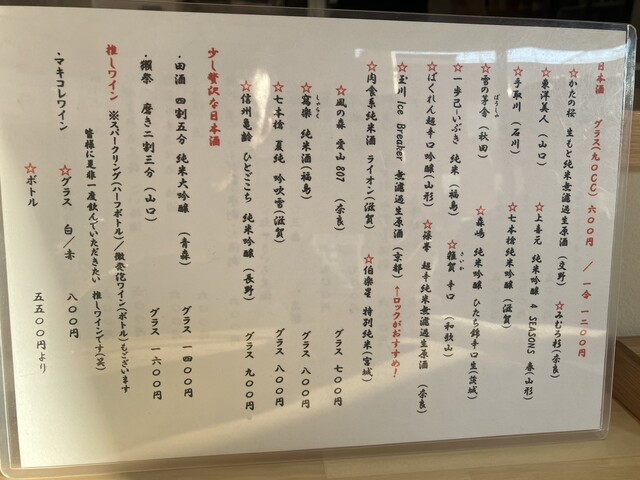 日本酒　グラス(九〇CC)　六〇〇円　/　一合　一二〇〇円
☆かたの桜　生もと純米無濾過生原酒(交野)　☆みむろ杉(奈良)
☆東洋美人(山口)　☆上喜元　純米吟醸　4 SEASONS　春(山形)
☆手取川(石川)　☆七本槍純米吟醸(滋賀)
☆雪の茅舎(秋田)　☆森嶋　純米吟醸　ひたち錦辛口生(茨城)
ぼうしゃ
☆一歩己―いぶき　純米(福島)　☆雑賀　辛口(和歌山)
さいか
☆ばくれん超辛口吟醸(山形)　☆篠峯　超辛純米無濾過生原酒(奈良)
☆玉川 Ice Breaker　無濾過生原酒(京都)　←ロックがおすすめ!
☆肉食系純米酒　ライオン(滋賀)　☆伯楽星　特別純米(宮城)
☆風の森　愛山807(奈良)　グラス　七〇〇円
☆寫樂　純米酒(福島)　グラス　八〇〇円
しゃらく
☆七本槍　夏純　吟吹雪(滋賀)　グラス　八〇〇円
☆信州亀齢　ひとごこち　純米吟醸(長野)　グラス　九〇〇円
少し贅沢な日本酒
・田酒　四割五分　純米大吟醸(青森)　グラス　一四〇〇円
・獺祭　磨き二割三分(山口)　グラス　一六〇〇円
推しワイン　※スパークリング(ハーフボトル)/微発泡ワイン(ボトル)もございます
皆様に是非一度飲んでいただきたい　推しワインです(笑)
・マキコレワイン　☆グラス　白/赤　八〇〇円
☆ボトル　五五〇〇円より